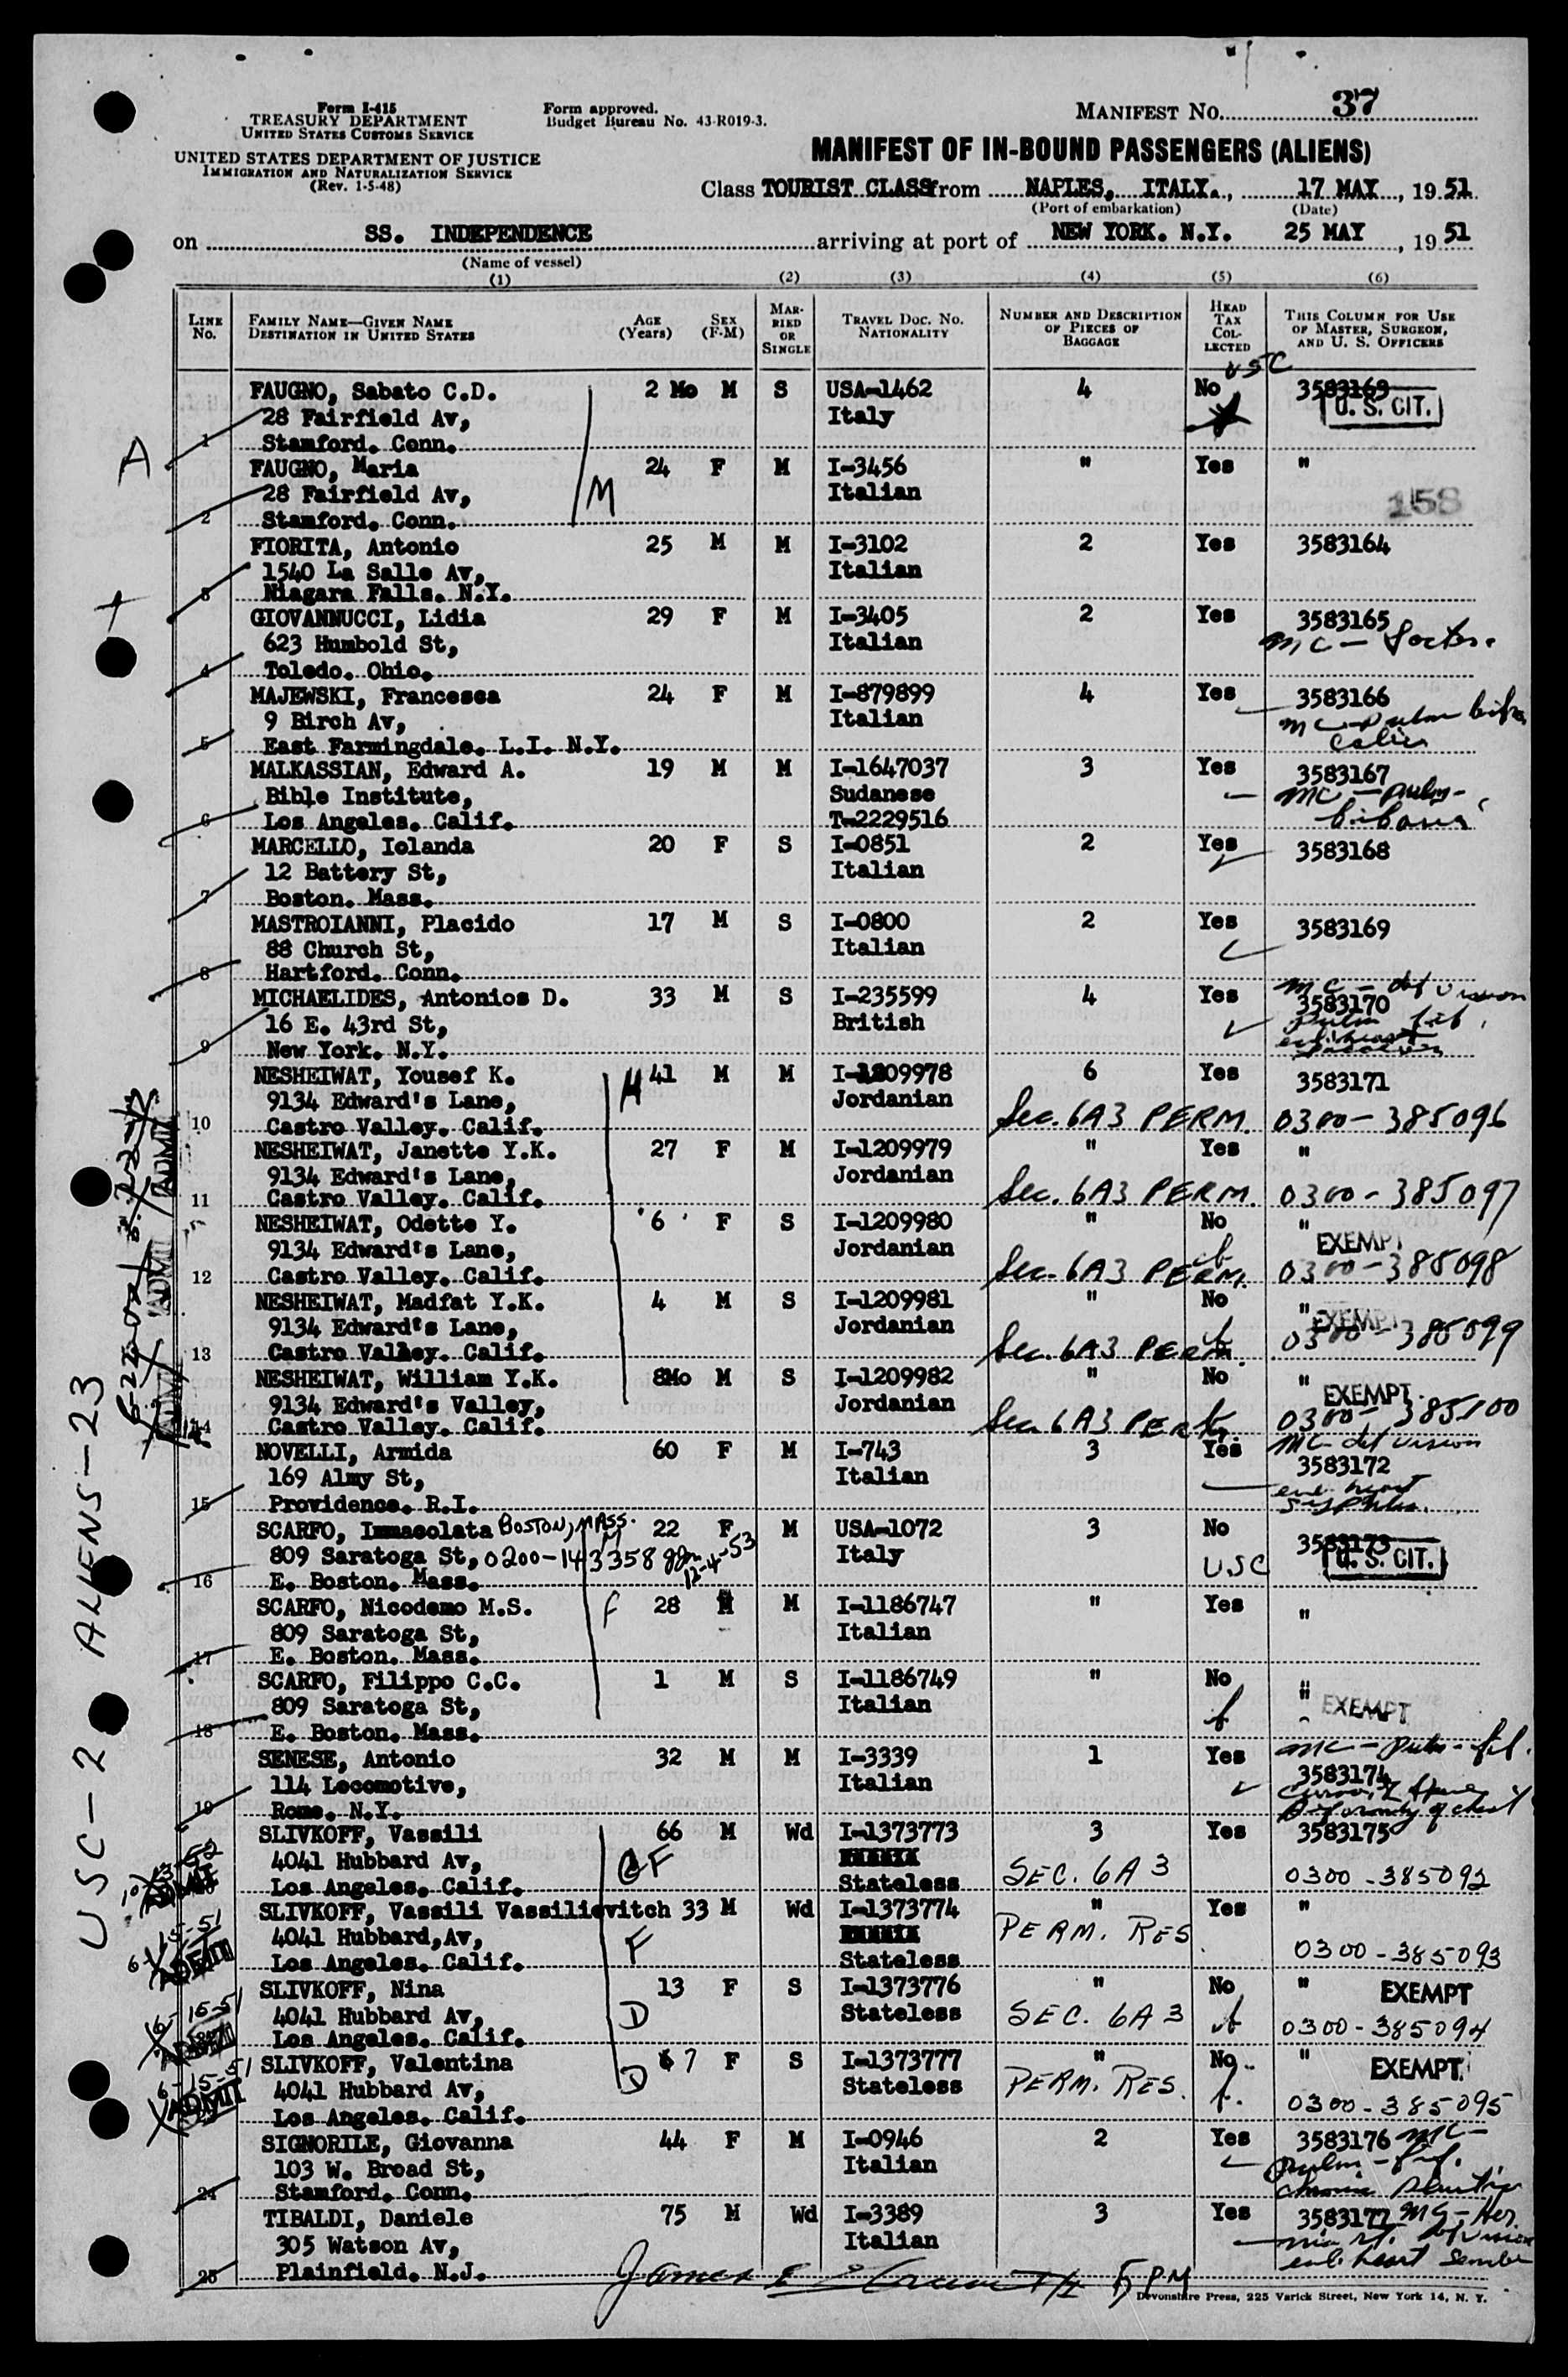 Form I-415
TREASURY DEPARTMENT
UNITED STATES CUSTOMS SERVICE
UNITED STATES DEPARTMENT OF JUSTICE
IMMIGRATION AND NATURALIZATION SERVICE
(Rev. 1-5-48)
Form approved.
Budget Bureau No. 43-R019-3.
MANIFEST NO. 37
MANIFEST OF IN-BOUND PASSENGERS (ALIENS)
Class TOURIST CLASS from NAPLES, ITALY., 17 MAY, 1951
(Port of embarkation) (Date)
on SS. INDEPENDENCE arriving at port of NEW YORK. N.Y. 25 MAY, 1951
(Name of vessel)
(1) (2) (3) (4) (5) (6)
LINE No. FAMILY NAME—GIVEN NAME DESTINATION IN UNITED STATES AGE (Years) SEX (F-M) MARRIED OR SINGLE TRAVEL DOC. NO. NATIONALITY NUMBER AND DESCRIPTION OF PIECES OF BAGGAGE HEAD TAX COLLECTED THIS COLUMN FOR USE OF MASTER, SURGEON, AND U. S. OFFICERS
USC
FAUGNO, Sabato C.D. 2 Mo M S USA-1462 4 No 3583163
28 Fairfield Av, Italy U. S. CIT.
1 Stamford. Conn.
A
FAUGNO, Maria 24 F M I-3456 " Yes "
28 Fairfield Av, M Italian 158
2 Stamford. Conn.
FIORITA, Antonio 25 M M I-3102 2 Yes 3583164
1540 La Salle Av, Italian
3 Niagara Falls. N.Y.
GIOVANNUCCI, Lidia 29 F M I-3405 2 Yes 3583165
623 Humbold St, Italian MC -
4 Toledo. Ohio.
MAJEWSKI, Francesca 24 F M I-879899 4 Yes 3583166
9 Birch Av, Italian MC - Pulm
5 East Farmingdale. L.I. N.Y.
MALKASSIAN, Edward A. 19 M M I-1647037 3 Yes 3583167
Bible Institute, Sudanese MC - Pulm -
6 Los Angeles. Calif. T-2229516
MARCELLO, Iolanda 20 F S I-0851 2 Yes 3583168
12 Battery St, Italian
7 Boston. Mass.
MASTROIANNI, Placido 17 M S I-0800 2 Yes 3583169
88 Church St, Italian
8 Hartford. Conn.
MC - def vision
MICHAELIDES, Antonios D. 33 M S I-235599 4 Yes 3583170
16 E. 43rd St, British Pulm fib.
9 New York. N.Y.
NESHEIWAT, Yousef K. H 41 M M I-1209978 6 Yes 3583171
9134 Edward's Lane, Jordanian
10 Castro Valley. Calif. Sec. 6A3 PERM. 0300-385096
NESHEIWAT, Janette Y.K. 27 F M I-1209979 " Yes "
9134 Edward's Lane, Jordanian
11 Castro Valley. Calif. Sec. 6A3 PERM. 0300-385097
NESHEIWAT, Odette Y. 6 F S I-1209980 " No "
9134 Edward's Lane, Jordanian EXEMPT
12 Castro Valley. Calif. Sec. 6A3 PERM. 0300-385098
NESHEIWAT, Madfat Y.K. 4 M S I-1209981 " No "
9134 Edward's Lane, Jordanian EXEMPT
13 Castro Valley. Calif. Sec. 6A3 PERM. 0300-385099
NESHEIWAT, William Y.K. 8Mo M S I-1209982 " No "
9134 Edward's Valley, Jordanian EXEMPT
14 Castro Valley. Calif. Sec. 6A3 PERM. 0300-385100
MC - def vision
NOVELLI, Armida 60 F M I-743 3 Yes 3583172
169 Almy St, Italian
15 Providence. R.I. enl. heart
SCARFO, Immacolata BOSTON, MASS. 22 F M USA-1072 3 No 3583173
809 Saratoga St, 0200-143358 12-4-53 Italy USC U. S. CIT.
16 E. Boston. Mass.
SCARFO, Nicodemo M.S. F 28 M M I-1186747 " Yes "
809 Saratoga St, Italian
17 E. Boston. Mass.
SCARFO, Filippo C.C. 1 M S I-1186749 " No "
809 Saratoga St, Italian EXEMPT
18 E. Boston. Mass.
MC - Pulm - fib.
SENESE, Antonio 32 M M I-3339 1 Yes 3583174
114 Locomotive, Italian
19 Rome. N.Y. Deformity of chest
SLIVKOFF, Vassili 66 M Wd I-1373773 3 Yes 3583175
4041 Hubbard Av, GF
Los Angeles. Calif. Stateless SEC. 6A3 0300-385092
SLIVKOFF, Vassili Vassilievitch 33 M Wd I-1373774 " Yes "
4041 Hubbard,Av, F PERM. RES
Los Angeles. Calif. Stateless 0300-385093
SLIVKOFF, Nina 13 F S I-1373776 " No " EXEMPT
4041 Hubbard Av, D Stateless SEC. 6A3 0300-385094
Los Angeles. Calif.
SLIVKOFF, Valentina 7 F S I-1373777 " No " EXEMPT
4041 Hubbard Av, D Stateless PERM. RES. 0300-385095
Los Angeles. Calif.
SIGNORILE, Giovanna 44 F M I-0946 2 Yes 3583176 MC -
103 W. Broad St, Italian Pulm - fib.
24 Stamford. Conn. chronic
TIBALDI, Daniele 75 M Wd I-3389 3 Yes 3583177 MC - Her
305 Watson Av, Italian nia rt. def vision
25 Plainfield. N.J. enl. heart
5 PM
Devonshire Press, 225 Varick Street, New York 14, N. Y.
USC-2 ALIENS-23
ADMIT
ADMIT
ADMIT
ADMIT
6-15-51
ADMIT
6-15-51
ADMIT
6-15-51
ADMIT